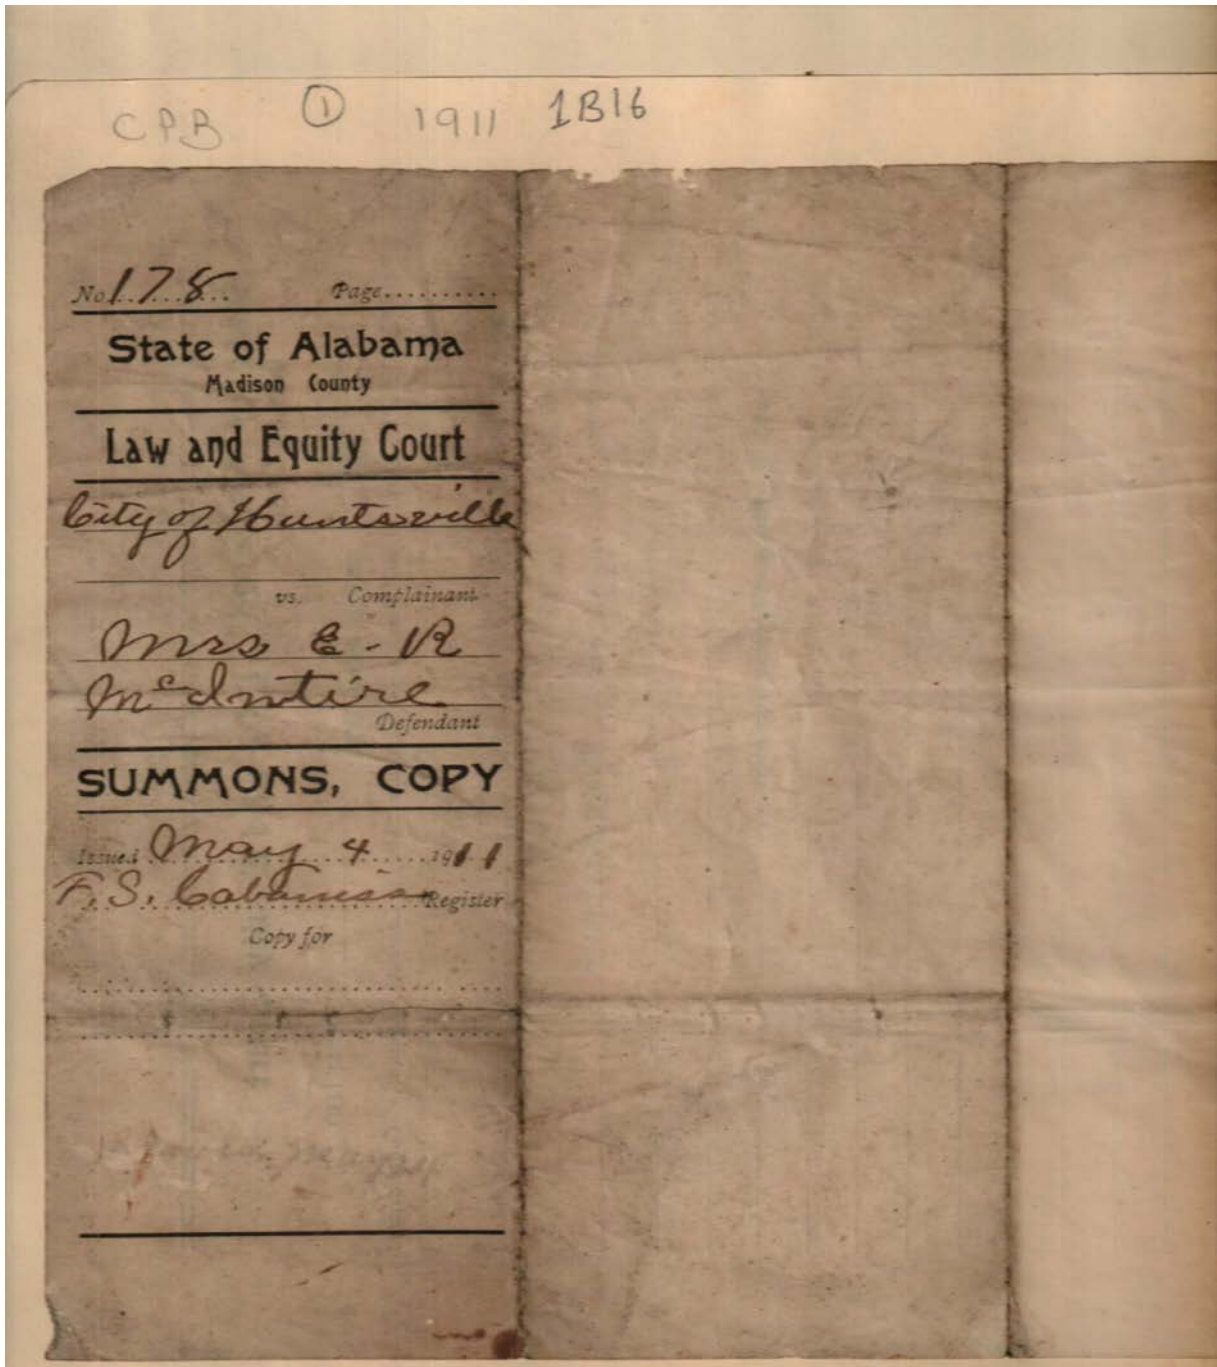 CPB ① 1911 1B16
No. 178 Page
State of Alabama
Madison County
Law and Equity Court
City of Huntsville
vs. Complainant
Mrs E - R
McIntire
Defendant
SUMMONS, COPY
Issued May 4 1911
F. S. Cabaniss Register
Copy for